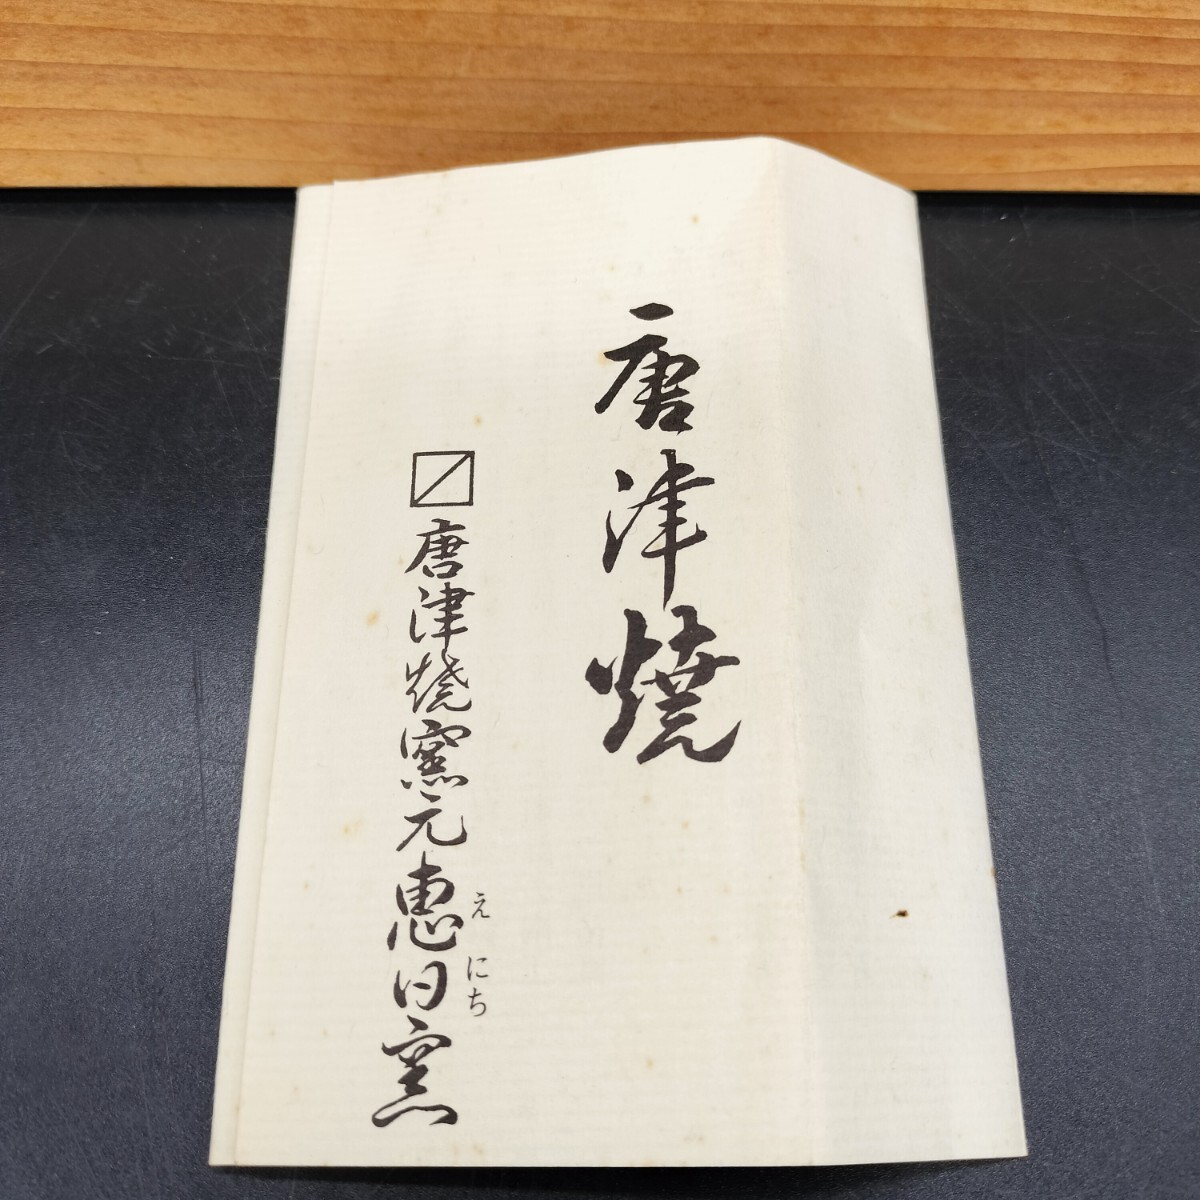 唐津焼
唐津焼窯元恵日窯
えにち